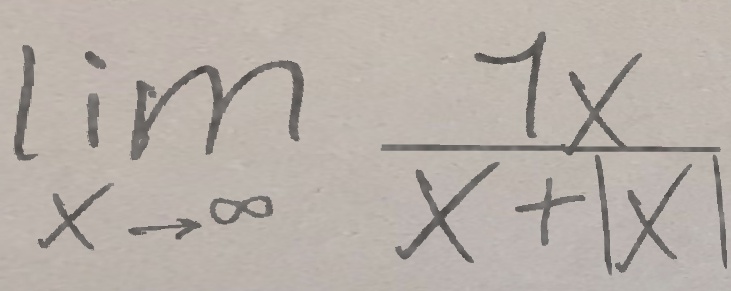 lim x→∞ 7x / x + |x|